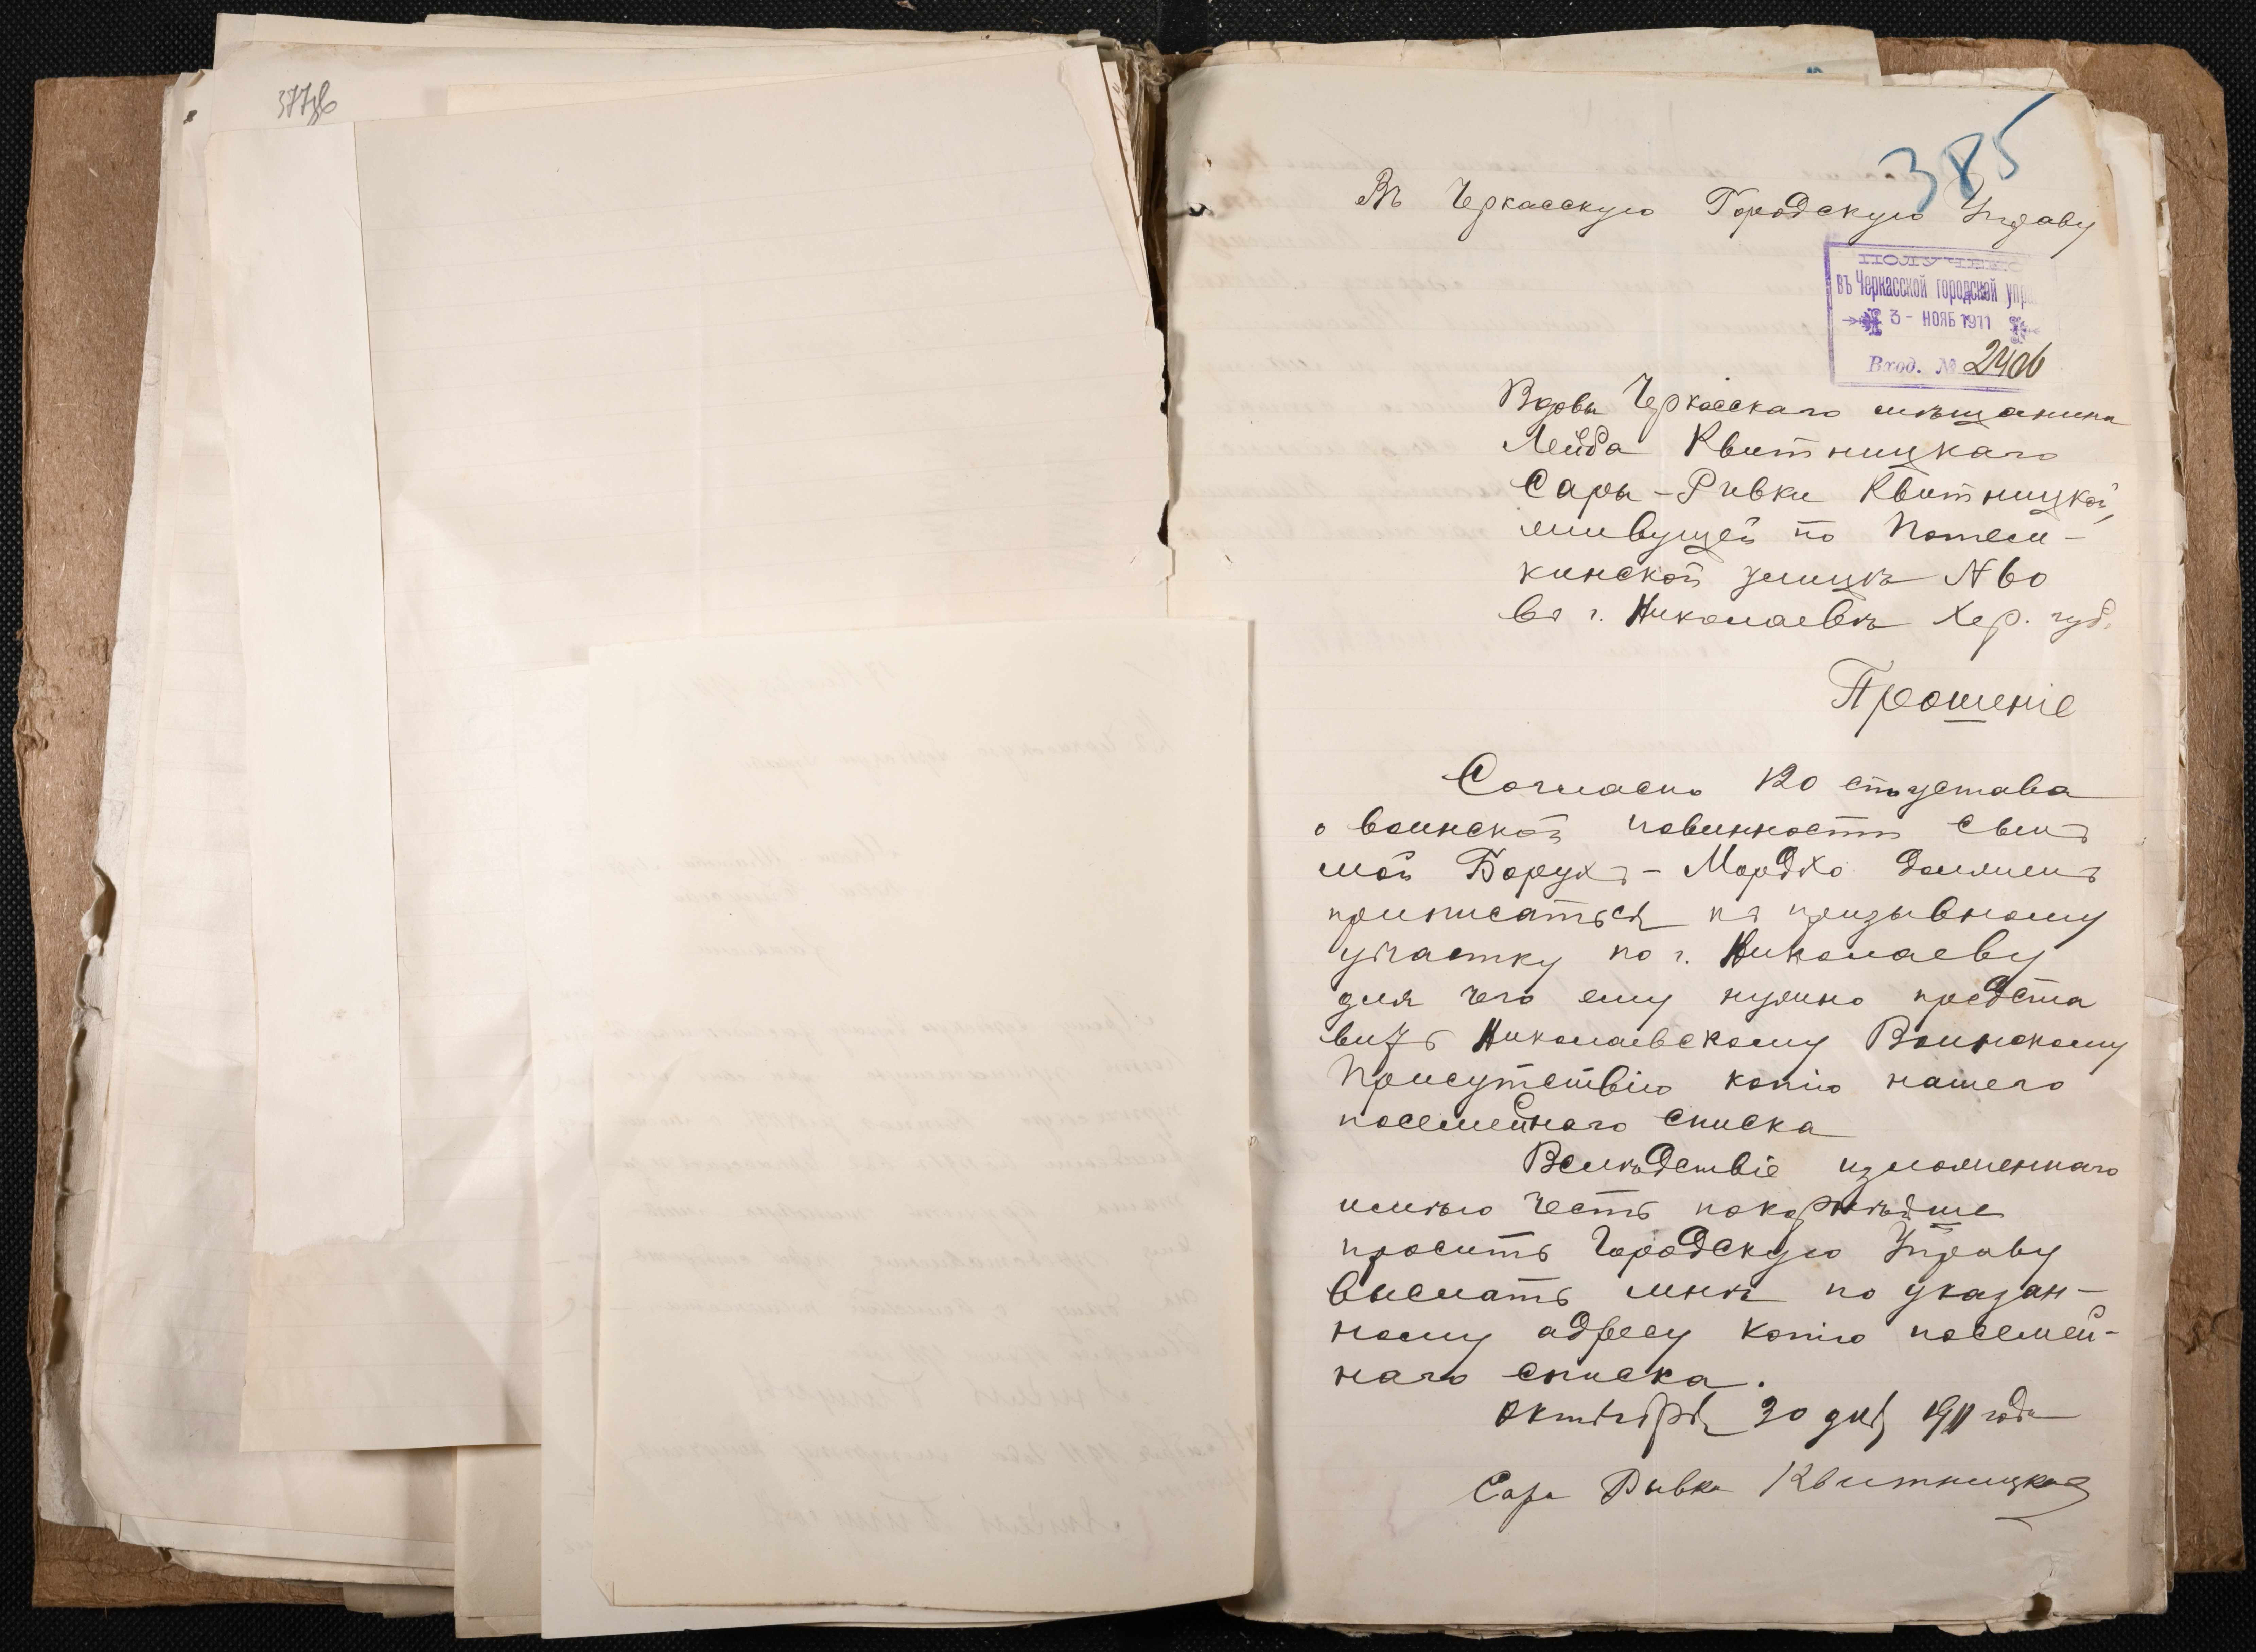 377об
385
Въ Черкасскую Городскую Управу
ПОЛУЧЕНО
въ Черкасской городской упр
3 - НОЯБ 1911
Вход. № 2406
Вдовы Черкасскаго мѣщанина
Лейба Квитницкаго
Сары-Ривки Квитницкой,
живущей по Потем-
кинской улицѣ № 60
въ г. Николаевѣ Хер. губ.
Прошеніе
Согласно 120 ст устава
о воинской повинности сынъ
мой Борухъ-Мордко долженъ
приписаться къ призывному
участку по г. Николаеву
для чего ему нужно предста
вить Николаевскому Воинскому
Присутствію копію нашего
посемейнаго списка
Вслѣдствіе изложеннаго
имѣю честь покорнѣйше
просить Городскую Управу
выслать мнѣ по указан-
ному адресу копію посемей-
наго списка.
Октября 30 дня 1911 года
Сара Рывка Квитницкая